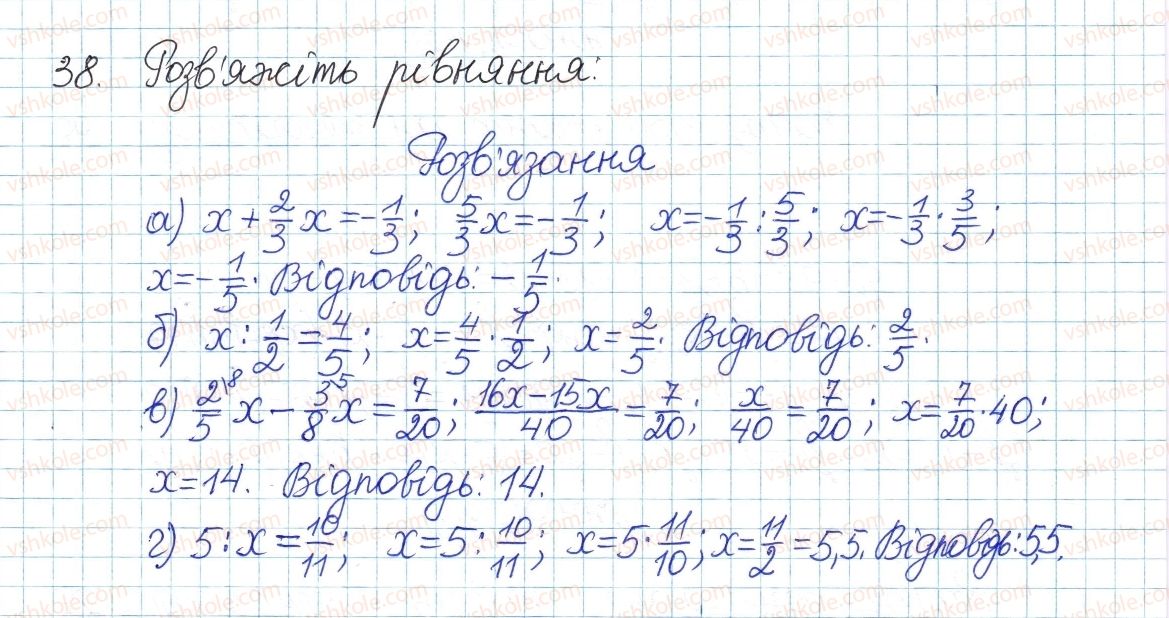 38. Розв'яжіть рівняння:
Розв'язання
а) x + 2/3 x = -1/3; 5/3 x = -1/3; x = -1/3 : 5/3; x = -1/3 · 3/5;
x = -1/5. Відповідь: -1/5.
б) x : 1/2 = 4/5; x = 4/5 · 1/2; x = 2/5. Відповідь: 2/5.
в) 2/5 \8 x - 3/8 \5 x = 7/20; (16x - 15x)/40 = 7/20; x/40 = 7/20; x = 7/20 · 40;
x = 14. Відповідь: 14.
г) 5 : x = 10/11; x = 5 : 10/11; x = 5 · 11/10; x = 11/2 = 5,5. Відповідь: 5,5.
vshkole.com